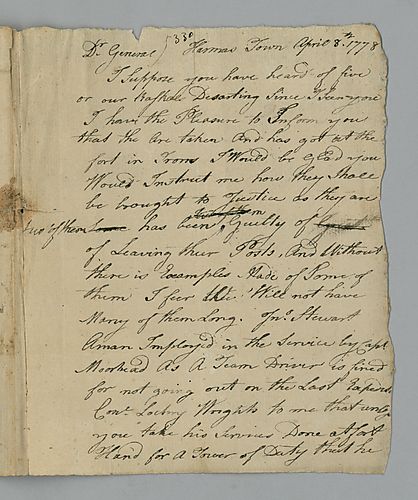 Dr General 5330 Hannas Town April 8th 1778
I Suppose you have heard of five
or our Raskals Desarting Since I Seen you
I have the Pleasure to Inform you
that the are taken And has got at the
fort in Irons I Would be Glad you
Would Instruct me how they Shall
be brought to Justice as they are
two of them has been Guilty of
of Leaving their Posts. And Without
there is Examples Made of Some of
them I fear We Will not have
Many of them Long. Jno. Stewart
Aman Imployed in the Service by Capt
Moorhead As A Team Driver is fined
for not going out on the Last Expedi
Conl. Lochry Wrights to me that unless
you take his Servises Done At fort
Hand for A Tower of Duty that he